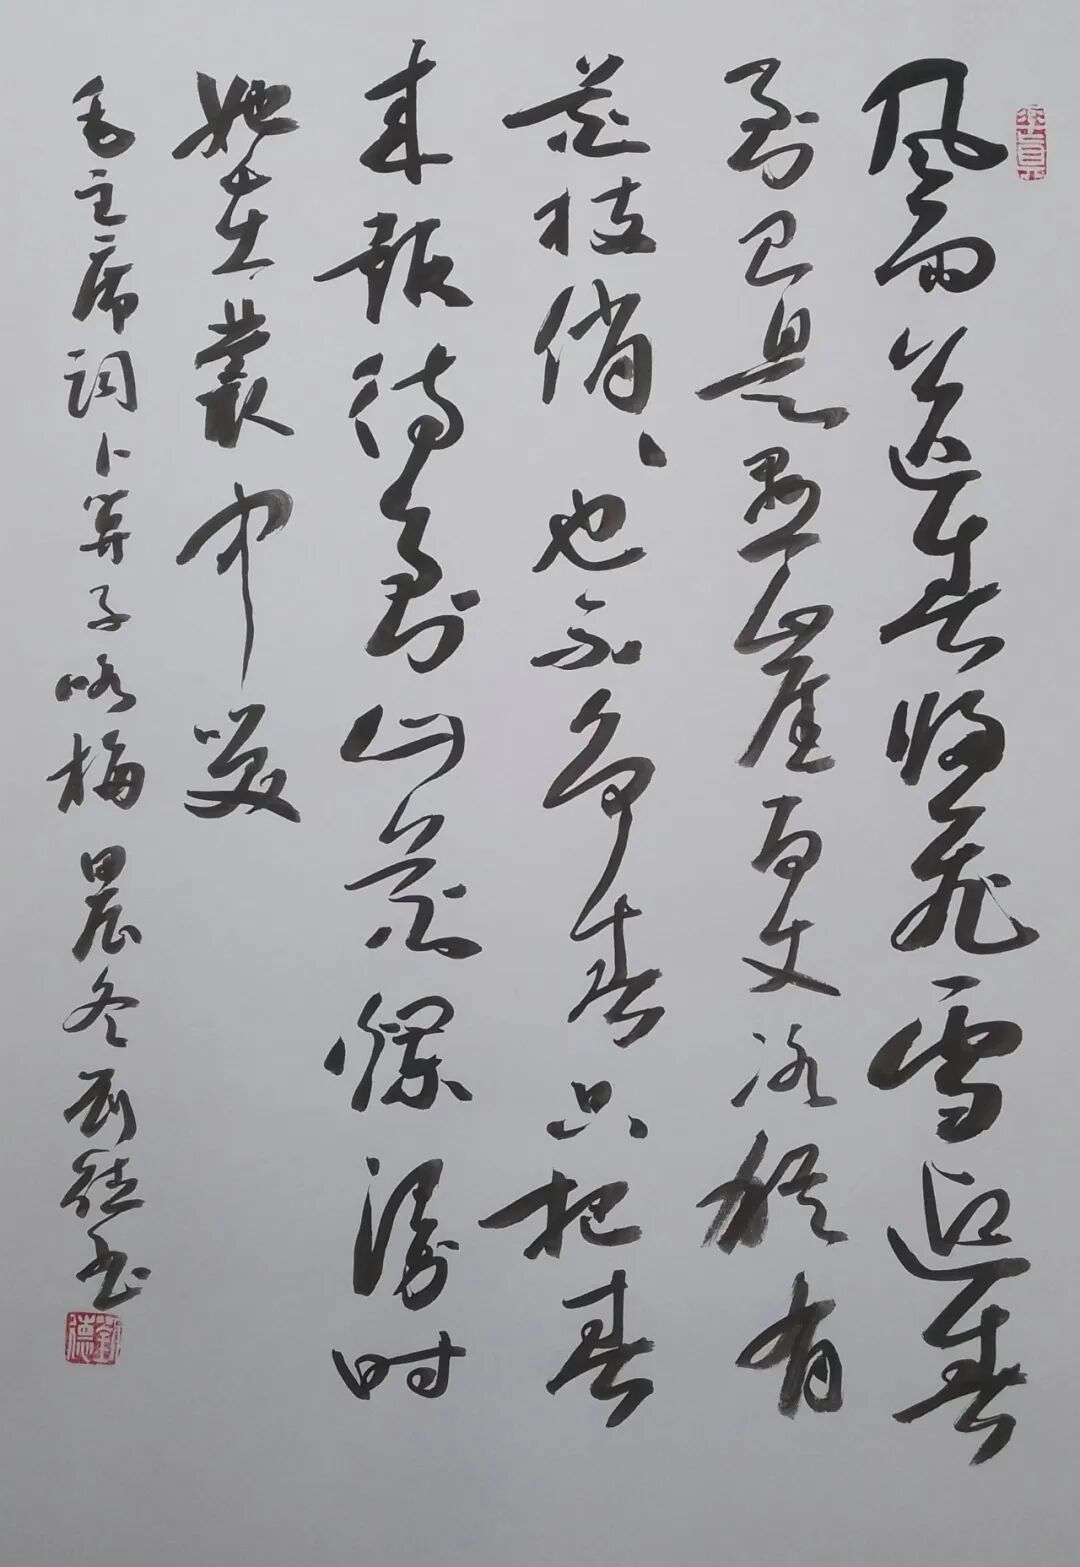 风雨送春归飞雪迎春
到已是悬崖百丈冰犹有
花枝俏、也不争春只把春
来报待到山花烂漫时
她在叢中笑
毛主席词卜算子咏梅 晨冬刘德书
劉德